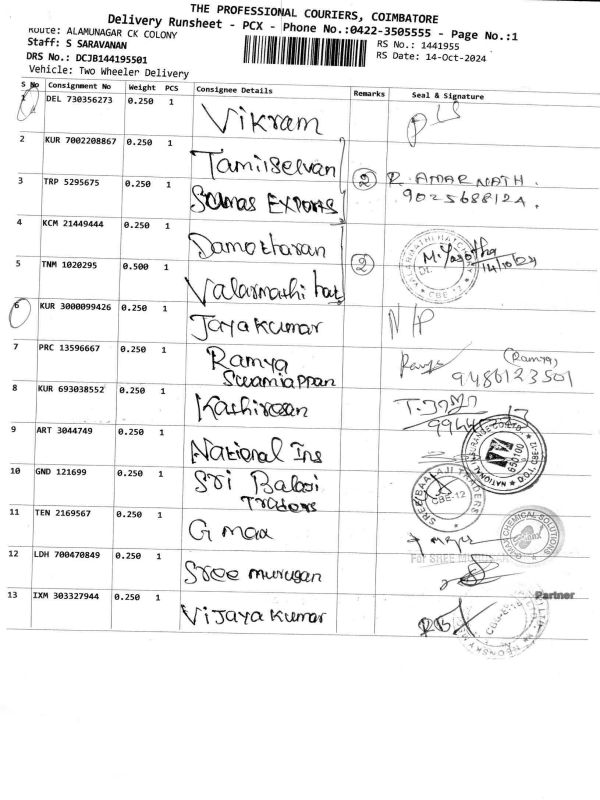 THE PROFESSIONAL COURIERS, COIMBATORE
Delivery Runsheet - PCX - Phone No.:0422-3505555 - Page No.:1
Route: ALAMUNAGAR CK COLONY
Staff: S SARAVANAN
RS No.: 1441955
DRS No.: DCJB144195501
RS Date: 14-Oct-2024
Vehicle: Two Wheeler Delivery
S No Consignment No Weight PCS Consignee Details Remarks Seal & Signature
1 DEL 730356273 0.250 1 Vikram
2 KUR 7002208867 0.250 1 Tamilselvan
3 TRP 5295675 0.250 1 Sumas EXPORTS 2 R. AMARNATH.
4 KCM 21449444 0.250 1 Damotharan
5 TNM 1020295 0.500 1 Valarmathi hat 2 14/10/24
6 KUR 3000099426 0.250 1 Jayakumar N/P
7 PRC 13596667 0.250 1 Ramya Swamiappan (Ramya) 9486123501
8 KUR 693038552 0.250 1 Kathiresan
9 ART 3044749 0.250 1 National Ins
NATIONAL 650100
10 GND 121699 0.250 1 Sri Balaji Traders
SREE BAALAJI TRADERS CBE-12
11 TEN 2169567 0.250 1 G max
CHEMICAL SOLUTIONS
For SREE
12 LDH 700470849 0.250 1 Sree murugan
Partner
13 IXM 303327944 0.250 1 Vijaya kumar